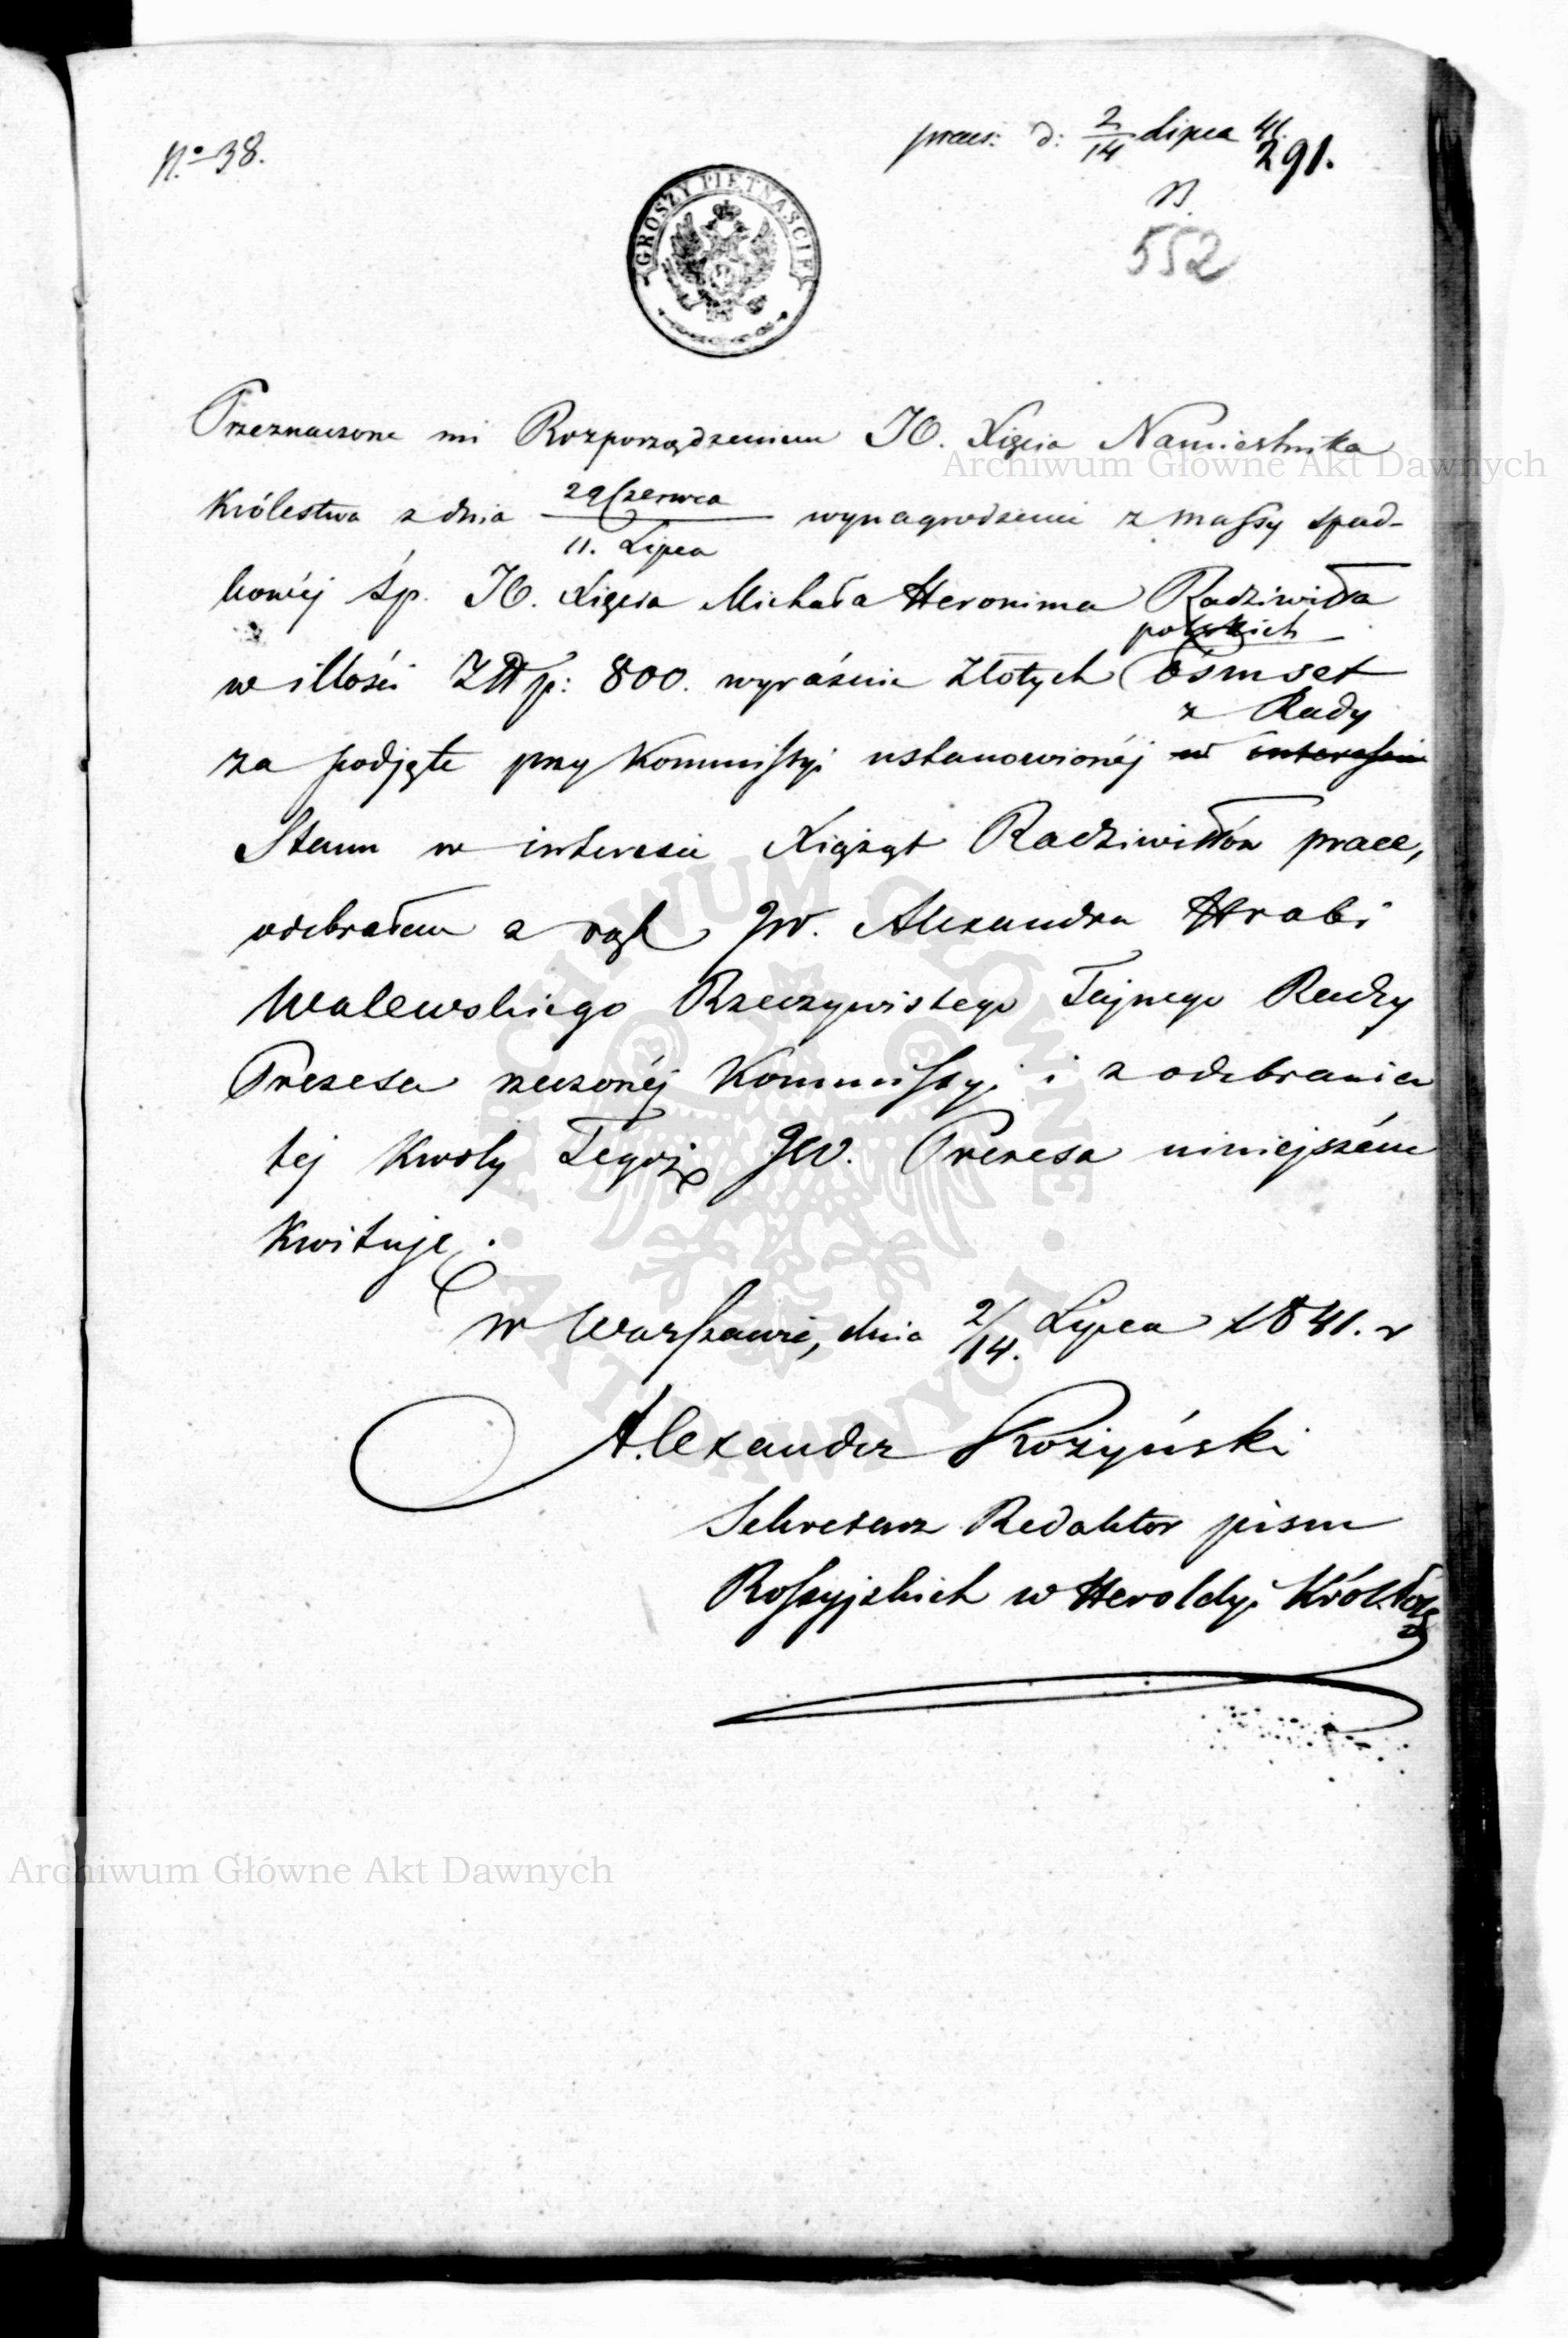 No 38.
praes: d: 2/14 Lipca 41.
291.
552
GROSZY PIĘTNAŚCIE
Przeznaczone mi Rozporządzeniem JO. Xięcia Namiestnika
Królestwa z dnia 29 Czerwca / 11. Lipca wynagrodzenie z massy spad-
kowéj śp. JO. Xięcia Michała Heronima Radziwiłła
polskich
w illości Złłp: 800. wyraźnie Złotych ośmset
z Rady
za podjęte przy Kommissyi ustanowionéj w interessie
Stanu w interesie Xiążąt Radziwiłłów prace,
odebrałem z rąk JW. Alexandra Hrabi
Walewskiego Rzeczywistego Tajnego Radzy
Prezesa rzeczonéj Kommissyi i z odebrania
tej Kwoty Tegoż JW. Prezesa niniejszém
Kwituję.
w Warszawie, dnia 2/14. Lipca 1841. r
Alexander Rożyński
Sekretarz Redaktor pism
Rossyjskich w Heroldyi Król.
Archiwum Główne Akt Dawnych
ARCHIWUM GŁÓWNE AKT DAWNYCH
Archiwum Główne Akt Dawnych